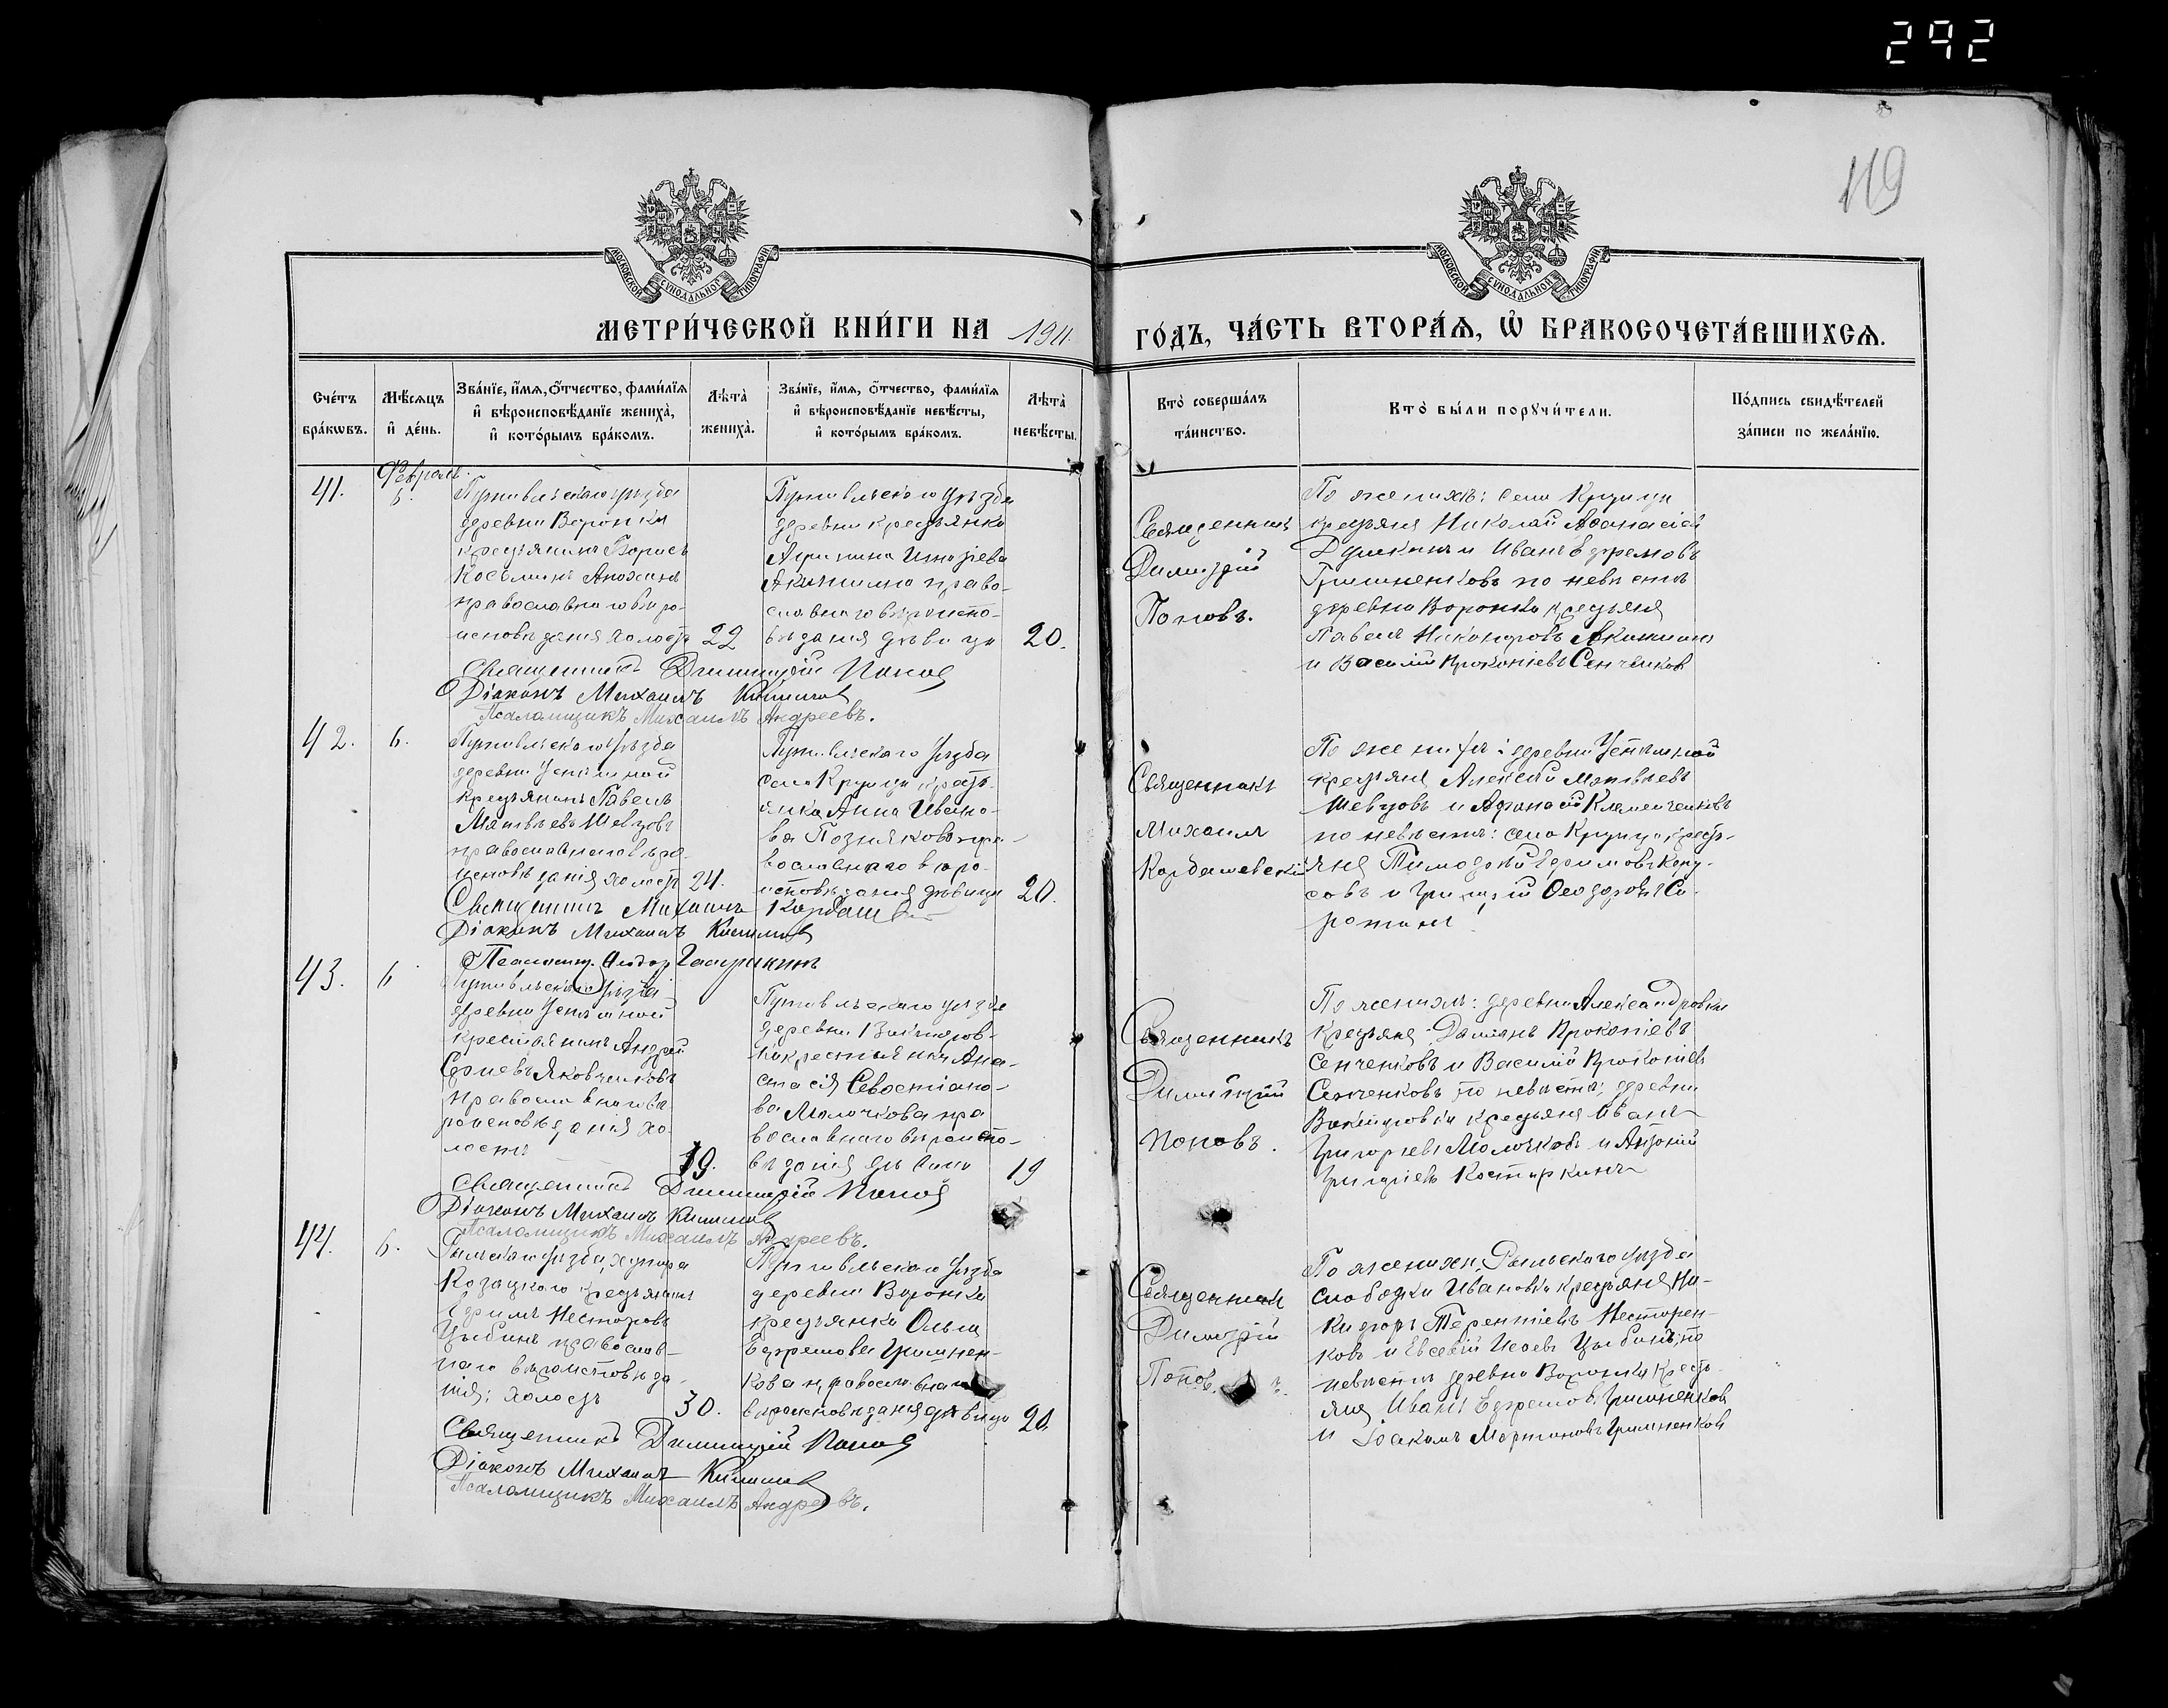 292
119
МОСКОВСКОЙ СѴНОДАЛЬНОЙ ТИПОГРАФІИ
МОСКОВСКОЙ СѴНОДАЛЬНОЙ ТИПОГРАФІИ
МЕТРИ́ЧЕСКОЙ КНИ́ГИ НА 1911.
ГО́ДЪ, ЧА́СТЬ ВТОРА́Ѧ, Ѡ҆ БРАКОСОЧЕТА́ВШИХСѦ.
Сче́тъ бра́кѡвъ.
Мѣ́сѧцъ и҆ де́нь.
Зва́нїе, и҆́мѧ, ѻ҆́тчество, фами́лїѧ и҆ вѣроисповѣ́данїе жениха̀, и҆ кото́рымъ бра́комъ.
Лѣта̀ жениха̀.
Зва́нїе, и҆́мѧ, ѻ҆́тчество, фами́лїѧ и҆ вѣроисповѣ́данїе невѣ́сты, и҆ кото́рымъ бра́комъ.
Лѣта̀ невѣ́сты.
Кто̀ соверша́лъ та́инство.
Кто̀ бы́ли порꙋчи́тели.
По́дпись свидѣ́телей за́писи по жела́нїю.
41.
Февраль
6.
Путивльскаго уѣзда
деревни Воронки
крестьянинъ Борисъ
Косьминъ Анохинъ
православнаго вѣро-
исповѣданія холостъ
22
Путивльскаго уѣзда
деревни крестьянка
Акимкина право-
славнаго вѣроиспо-
вѣданія дѣвица
20.
Священникъ
Димитрій
Поповъ.
По женихѣ: села Крупца
крестьяне Николай Аѳанасіев
и Иванъ Ефремовъ
Гришненковъ по невѣстѣ
деревни Воронки крестьяне
Павелъ Никаноровъ Акимкинъ
и Василій Прокопіевъ Сенченков
Священникъ Димитрій Попов
Діаконъ Михаилъ
Псаломщикъ Михаилъ Андреевъ.
42.
6.
Путивльскаго уѣзда
деревни
крестьянинъ Павелъ
Матвѣевъ Шевцовъ
православнаго вѣро-
исповѣданія холостъ
24.
Путивльскаго уѣзда
села Крупца кресть-
янка Анна Ивано-
ва Позднякова пра-
вославнаго вѣро-
исповѣданія дѣвица
20.
Священникъ
Михаилъ
Кардашевскій
По женихѣ: деревни
крестьяне Алексѣй Матвѣевъ
Шевцовъ и Афанасій Клименченковъ
по невѣстѣ: села Крупца кресть-
яне Тимофей Ефимовъ
и Григорій Ѳеодоровъ Си-
ротинъ
Священникъ Михаилъ Кардашев
Діаконъ Михаилъ
Псаломщ. Ѳедор
43.
6
Путивльскаго уѣзда
деревни
крестьянинъ Андрей
Сергѣевъ Яковченковъ
православнаго вѣ-
роисповѣданія хо-
лостъ
19.
Путивльскаго уѣзда
деревни Викторов-
ки крестьянка Ана-
стасія Севостіано-
ва Молочкова пра
вославнаго вѣроиспо-
вѣданія дѣвица
19
Священникъ
Димитрій
Поповъ.
По женихѣ: деревни Александровки
крестьяне Даміанъ Прокопіевъ
Сенченковъ и Василій Прокопіевъ
Сенченковъ по невѣстѣ: деревни
Викторовки крестьяне Иванъ
Григорьевъ Молочковъ и Антоній
Григоріевъ Костыркинъ
Священникъ Димитрій Попов
Діаконъ Михаилъ
Псаломщикъ Михаилъ Андреевъ.
44.
6.
Рыльскаго уѣзда, хутора
Козацкаго крестьянинъ
Ефимъ Несторовъ
Цыбинъ православ-
наго вѣроисповѣда-
нія; холостъ
30.
Путивльскаго уѣзда
деревни Воронки
крестьянка Ольга
Ефремова Гришнен-
кова православнаго
вѣроисповѣданія дѣвица
20.
Священникъ
Димитрій
Попов
По женихѣ, Рыльскаго уѣзда
слободки Ивановки крестьяне Ни-
кифоръ Терентіевъ Несторен-
ковъ и Евсевій Исаевъ Цыбинъ, по
невѣстѣ деревни Воронки кресть-
яне Иванъ Ефремовъ Гришненков
и Іоакимъ Мартиновъ Гришненков
Священникъ Димитрій Попов
Діаконъ Михаилъ
Псаломщикъ Михаилъ Андреевъ.